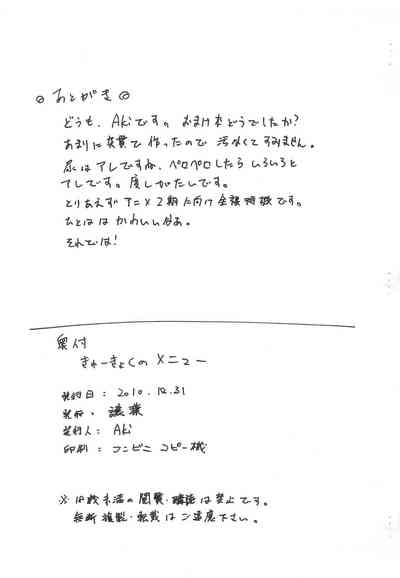 ◎ あとがき ◎
どうも、Akiです。おまけ本どうでしたか?
あまりに突貫で作ったので 汚なくてすみません。
尿はアレですね、ペロペロしたらいろいろと
アレです。度しがたしです。
とりあえずアニメ2期に向け全裸待機です。
ひとははかわいいなあ。
それでは!
奥付
きゅーきょくのメニュー
発行日: 2010.12.31
発行:
発行人: Aki
印刷: コンビニ コピー機
※ 18歳未満の閲覧・購読は禁止です。
無断複製・転載はご遠慮下さい。